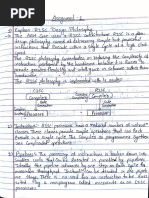 Assignment 1
1) Explain RISC Design Philosophy.
→ The ARM core uses a RISC architecture. RISC is a design
philosophy aimed at delivering simple but powerful
instructions that execute within a single cycle at a high clock
speed.
The RISC philosophy concentrates on reducing the complexity of
instructions performed by the hardware because it is easier to
provide greater flexibility and intelligence in software rather than
hardware.
The RISC philosophy is implemented with
CISC
RISC
Compiler
Compiler
Code
Code
Processor
Processor
1) Instruction: RISC processors have a reduced number of instruction
classes. These classes provide simple operations that can each
execute in a single cycle. The compiler
operations by combining several simple
instructions.
2) Pipelines: The processing of instructions is broken down into
smaller units that can be executed in parallel by pipelines.
Ideally the pipeline advances by one step on each cycle for
maximum throughput. Instructions can be decoded in one
pipeline stage. There is no need for an instruction to be
executed by a miniprogram called microcode as on CISC
processors.